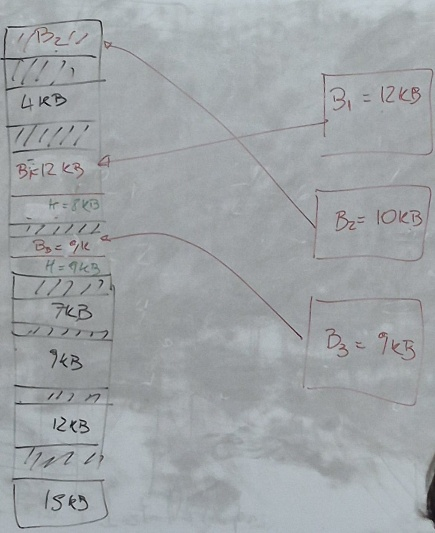 B₂
4KB
B₁=12KB
H=8KB
B₃=9K
H=9KB
7KB
9KB
12KB
15KB
B₁ = 12KB
B₂= 10KB
B₃ = 9KB